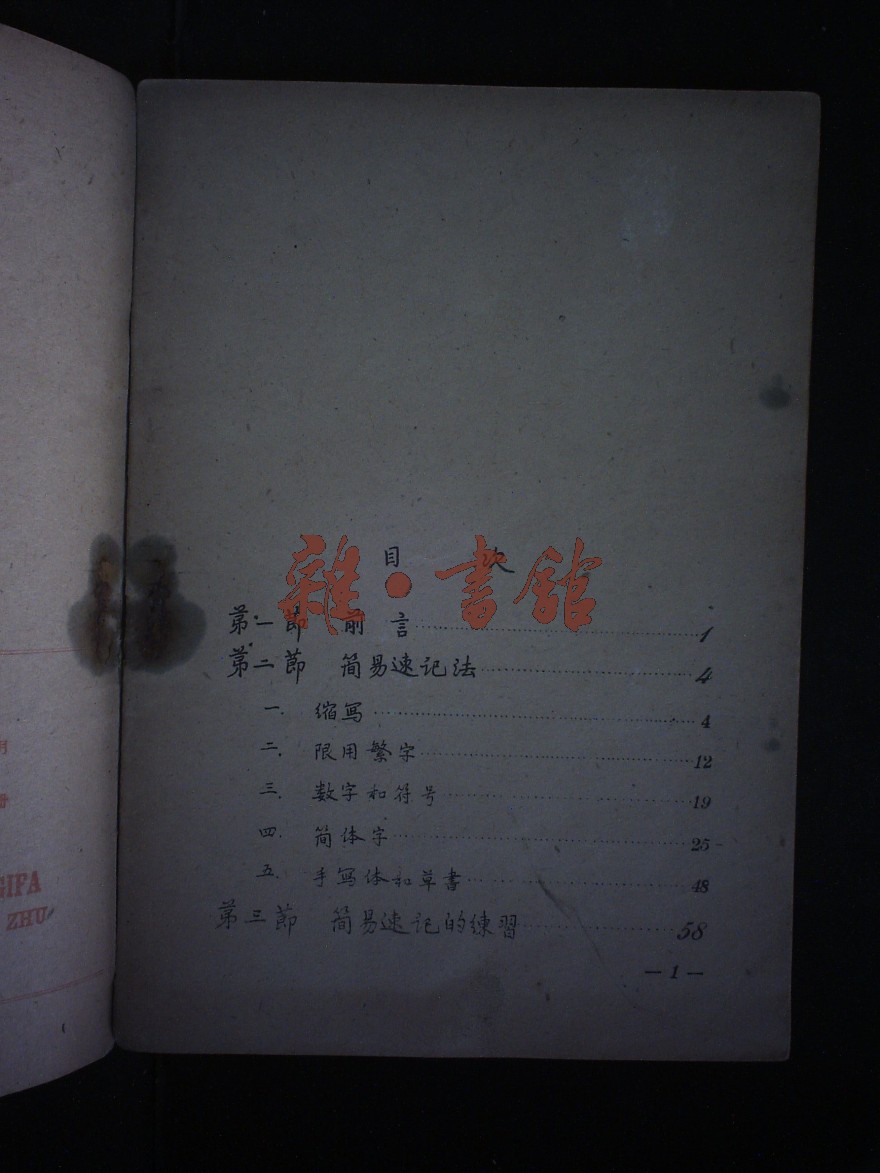 月
册
GIFA
ZHU
雜·書館
目 次
第一節 前言 1
第二節 简易速记法 4
一. 缩写 4
二. 限用繁字 12
三. 数字和符号 19
四. 简体字 25
五. 手写体和草書 48
第三節 简易速记的练習 58
— 1 —